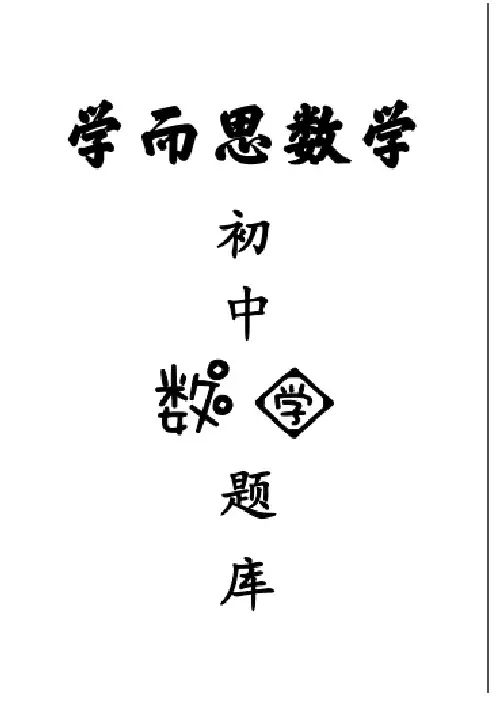 学而思数学
初
中
数学
题
库